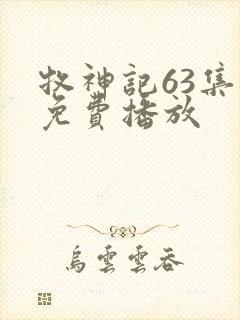 牧神記63集
免費播放
烏雲雲吞